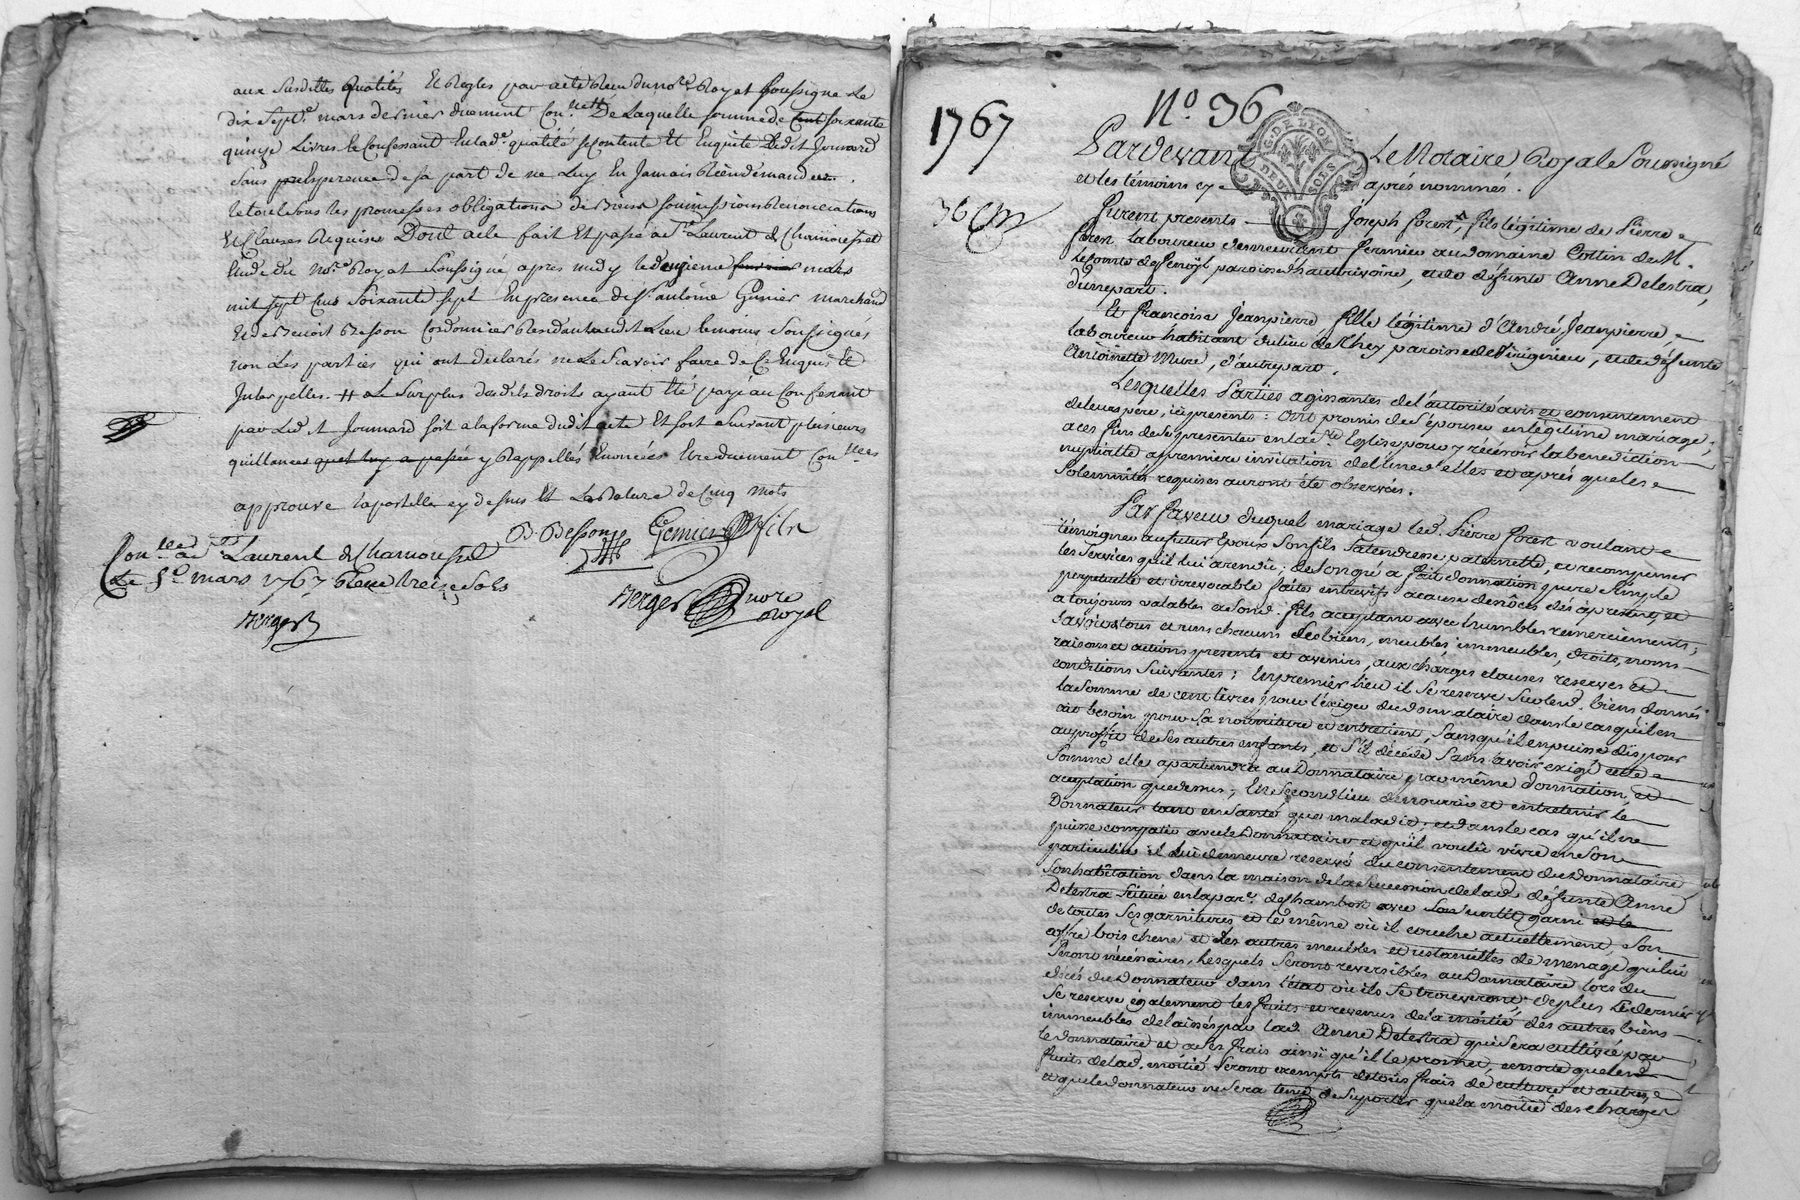 aux susdittes qualités Et Reglés par acte Reçu du no.re Royal soussigné Le
dix sept.e mars dernier duement Con.llé De Laquelle somme de cent soixante
quinze Livres le Confessant En lad.e qualité se contente Et Enquitte Ledit Jouvard
Sans Esperence de sa part de ne Luy En Jamais Rien demander.
le tout sous les promesses obligations de Biens soumissions Renonciations
Et Clauses Requises Dont acte fait Et passé a S.t Laurent de Chamousset
Etude du No.re Royal Soussigné apres midy le deuzieme fevrier mars
mil sept Cens Soixante Sept En presence de S.r antoine Genier marchand
Et de Benoit Besson Cordonnier Residants audit Lieu temoins Soussignés
non Les parties qui ont declarés ne Le Scavoir faire de Ce Enquis Et
Interpellés. # Le Surplus desdits droits ayant Eté payé au Confessant
par Led.it Joumard soit a la forme dudit acte Et soit suivant plusieurs
quittances quel luy a passée y Rappellés Enoncées Et duement Con.llees
approuvé lapostille cy dessus Et La Rature de Cinq mots
B. Besson Genier fils
Con.llé a S.t Laurent de Chamousset
Le 5.e mars 1767 Reçu treize sols
Berger no.re
Royal
Berger
1767
N.o 36
G. DE LYON
DEUX SOLS
Pardevant Le Notaire Royal Soussigné
et les témoins cy après nommés.
Furent presents Joseph forest, fils légitime de Pierre
forest laboureur demeurant fermier au domaine Cottin de M.
le comte de Senoÿl paroisse d'hauterivoire, et de défunte Anne Delestra,
d'une part.
Et Françoise Jeanpierre, fille légitime d'André Jeanpierre,
laboureur habitant du lieu de Rhey paroisse de Virigneu, et de défunte
Antoinette Mure, d'autre part.
Lesquelles Parties agissantes de l'autorité avis et consentement
de leurs pere, icy presents: Ont promis de s'épouser en légitime mariage,
a ces fins de se presenter en la S.te Eglise pour y récévoir la benediction
nuptialle a premiere invitation de l'une d'elles et aprés que les
Solemnités requises auront été observés.
En faveur duquel mariage led. Pierre Forest voulant
témoigner au futur Epoux Son fils Sa tendresse paternelle, et recompenser
les Services qu'il lui a rendu; de Son gré a fait donnation pure Simple
perpetuelle et irrevocable faite entrevifs a cause de nôces dés àpresent, et
a toujours valables a Sond. fils aceptant avec humbles remerciements;
Savoir tous et uns chacuns Ses biens, meubles, immeubles, droits, noms
raisons et actions presents et avenirs, aux charges clauses reserves et
conditions Suivantes; En premier lieu il Se reserve Sur lesd. biens donnés
la Somme de cent livres pour l'exiger du donnataire dans le cas qu'il en
ait besoin pour Sa nourriture et entretient, Sans qu'il en puisse disposer
au proffit de Ses autres enfants, et S'il décéde Sans l'avoir exigé cette
Somme elle apartiendra au Donnataire par même donnation et
aceptation que dessus; En Second lieu de nourrir et entretenir le
Donnateur tant en Santé que maladie; et dans le cas qu'il ne
puisse compatir avec le Donnataire et qu'il voulût vivre en Son
particulier il lui demeure reservé du consentement du Donnataire
Son habitation dans la maison de la Succession de lad. défunte Anne
Delestra Scituée en la par.e de Chambost avec Son lit garni
de toutes Ses garnitures et le même où il couche actuellement, Son
coffre bois chene et les autres meubles et ustancilles de menage qui lui
Seront nécessaires, lesquels Seront reversibles au Donnataire lors du
décés du Donnateur dans l'état où ils Se trouveront; de plus Ce dernier
Se reserve également les fruits et revenus de la moitié des autres biens
immeubles delaissés par lad. Anne Delestra qui Sera cultivée par
le donnataire et a Ses frais ainsi qu'il le promet, ensorte que les
fruits de lad. moitié Seront exempts de tous frais de culture et autres,
et que le donnateur ne Sera tenu de Suporter que la moitié des charges